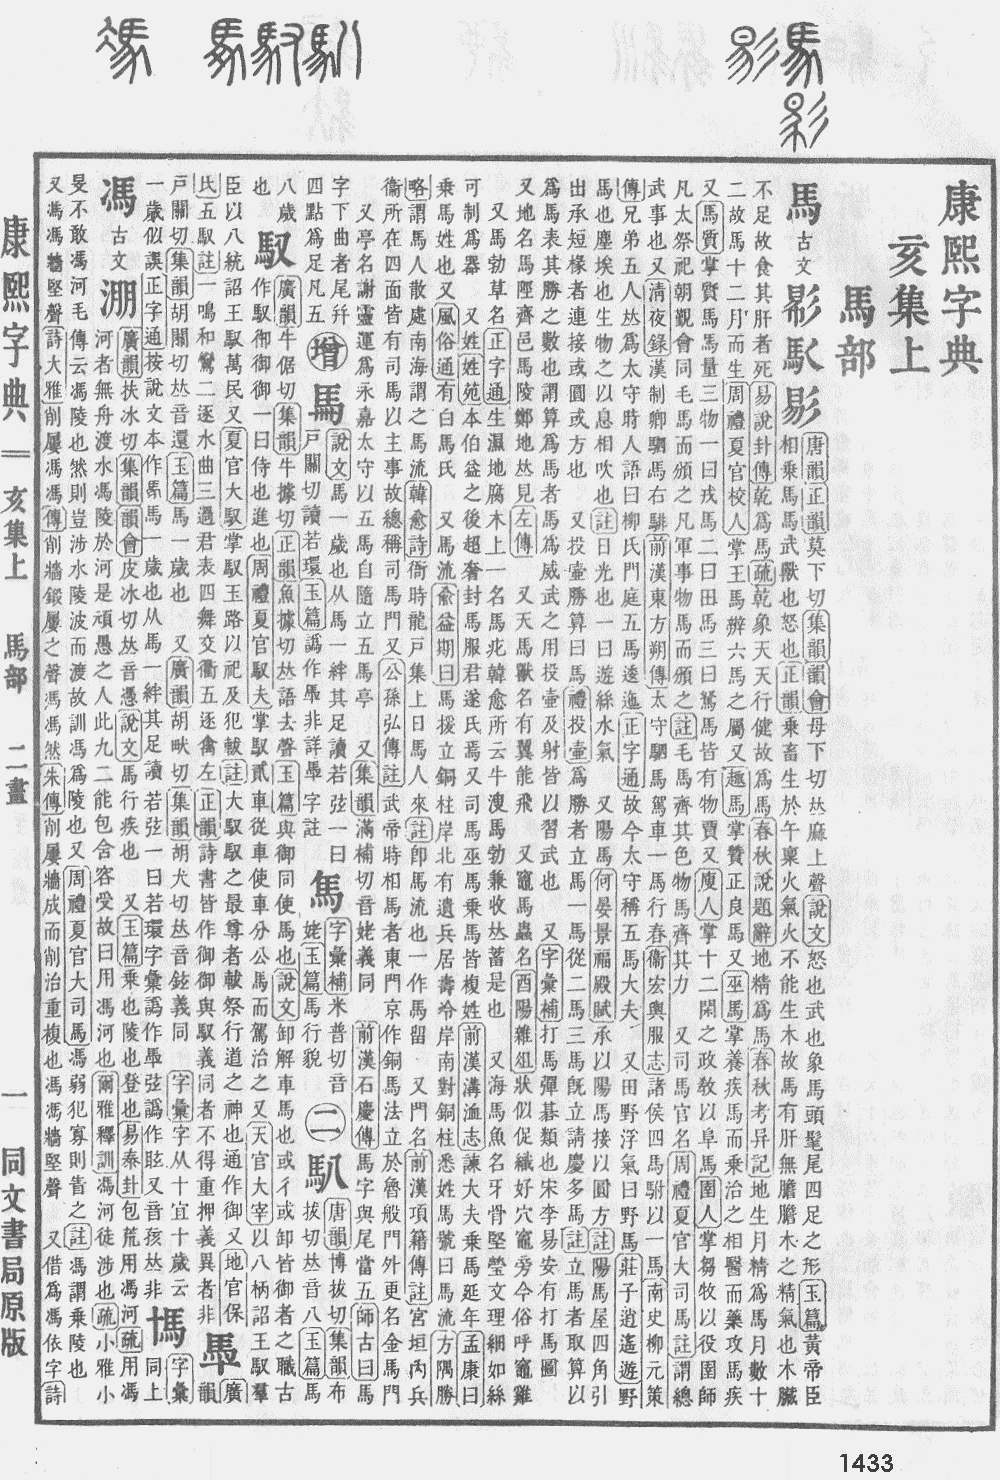 康熙字典
亥集上
馬部
馬古文𢒠𢒗影唐韻正韻莫下切集韻韻會母下切𠀤麻上聲說文怒也武也象馬頭髦尾四足之形玉篇黃帝臣
相乘馬馬武獸也怒也正韻乘畜生於午稟火氣火不能生木故馬有肝無膽膽木之精氣也木臟
不足故食其肝者死易說卦傳乾爲馬疏乾象天天行健故爲馬春秋說題辭地精爲馬春秋考异記地生月精爲馬月數十
二故馬十二月而生周禮夏官校人掌王馬辨六馬之屬又趣馬掌贊正良馬又巫馬掌養疾馬而乘治之相醫而藥攻馬疾
又馬質掌質馬馬量三物一曰戎馬二曰田馬三曰駑馬皆有物賈又廋人掌十二閑之政敎以阜馬圉人掌芻牧以役圉師
凡大祭祀朝覲會同毛馬而頒之凡軍事物馬而頒之註毛馬齊其色物馬齊其力 又司馬官名周禮夏官大司馬註謂總
武事也又淸夜錄漢制卿駟馬右騑前漢東方朔傳太守駟馬駕車一馬行春衞宏輿服志諸侯四馬駙以一馬南史柳元策
傳兄弟五人𠀤爲太守時人語曰柳氏門庭五馬逶迤正字通故今太守稱五馬大夫 又田野浮氣曰野馬莊子逍遙遊野
馬也塵埃也生物之以息相吹也註日光也一曰遊絲水氣 又陽馬何晏景福殿賦承以陽馬接以圓方註陽馬屋四角引
出承短椽者連接或圓或方也 又投壷勝算曰馬禮投壷爲勝者立馬一馬從二馬三馬旣立請慶多馬註立馬者取算以
爲馬表其勝之數也謂算爲馬者馬爲威武之用投壷及射皆以習武也 又字彙補打馬彈碁類也宋李易安有打馬圖
又地名馬陘齊邑馬陵鄭地𠀤見左傳 又天馬獸名有翼能飛 又竈馬蟲名酉陽雜俎狀似促織好穴竈旁今俗呼竈雞
又馬勃草名正字通生濕地腐木上一名馬疕韓愈所云牛溲馬勃兼收𠀤蓄是也 又海馬魚名牙骨堅瑩文理細如絲
可制爲器 又姓姓苑本伯益之後趙奢封馬服君遂氏焉又司馬巫馬乘馬皆複姓前漢溝洫志諫大夫乗馬延年孟康曰
乗馬姓也又風俗通有白馬氏 又馬流兪益期曰馬援立銅柱岸北有遺兵居壽冷岸南對銅柱悉姓馬號曰馬流方隅勝
略謂馬人散處南海謂之馬流韓愈詩衙時龍戸集上日馬人來註卽馬流也一作馬留 又門名前漢項籍傳註宮垣內兵
衞所在四面皆有司馬以主事故總稱司馬門又公孫弘傳註武帝時相馬者東門京作銅馬法立於魯般門外更名金馬門
又亭名謝靈運爲永嘉太守以五馬自隨立五馬亭 又集韻滿補切音姥義同 前漢石慶傳馬字與尾當五師古曰馬
字下曲者尾幷
四點爲足凡五
增𩡧說文馬一歲也从馬一絆其足讀若弦一曰
戸關切讀若環玉篇譌作馽非詳馽字註
𩡩字彙補米普切音
姥玉篇馬行貌
二
馴唐韻博拔切集韻布
拔切𠀤音八玉篇馬
八歲
也
馭廣韻牛倨切集韻牛據切正韻魚據切𠀤語去聲玉篇與御同使馬也說文卸解車馬也或彳或卸皆御者之職古
作馭御御御一曰侍也進也周禮夏官馭夫掌馭貳車從車使車分公馬而駕治之又天官大宰以八柄詔王馭羣
臣以八統詔王馭萬民又夏官大馭掌馭玉路以祀及犯軷註大馭馭之最尊者軷祭行道之神也通作御又地官保
氏五馭註一鳴和鸞二逐水曲三過君表四舞交衢五逐禽左正韻詩書皆作御御與馭義同者不得重押義異者非
馽廣
韻
戸關切集韻胡關切𠀤音還玉篇馬一歲也 又廣韻胡畎切集韻胡犬切𠀤音鉉義同 字彙字从十宜十歲云
一歲似誤正字通按說文本作𩡧馬一歲也从馬一絆其足讀若弦一曰若環字彙譌作馽弦譌作眩又音孩𠀤非
馮字彙
同上
馮古文淜廣韻扶冰切集韻韻會皮冰切𠀤音憑說文馬行疾也 又玉篇乗也陵也登也易泰卦包荒用馮河疏用馮
河者無舟渡水馮陵於河是頑愚之人此九二能包含容受故曰用馮河也爾雅釋訓馮河徒涉也疏小雅小
旻不敢馮河毛傳云馮陵也然則豈涉水陵波而渡故訓馮爲陵也又周禮夏官大司馬馮弱犯寡則眚之註馮謂乗陵也
又馮馮牆堅聲詩大雅削屢馮馮傳削牆鍛屢之聲馮馮然朱傳削屢牆成而削治重複也馮馮牆堅聲 又借爲馮依字詩
康熙字典 亥集上 馬部 二畫 一 同文書局原版
1433